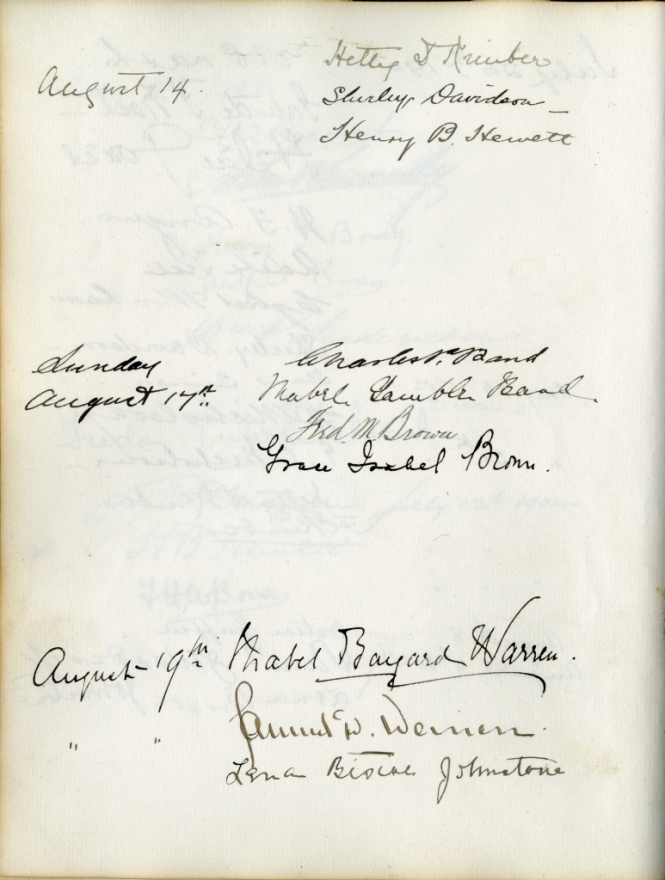 August 14.
Hettie D Kimber
Shirley Davidson
Henry B. Hewett
Sunday
August 17th
Charles P. Band
Mabel Camblin Band.
Fred. M Brown
Grace Isabel Brown.
August 19th Mabel Bayard Warren.
" " Samuel D. Warren.
Lena Johnstone